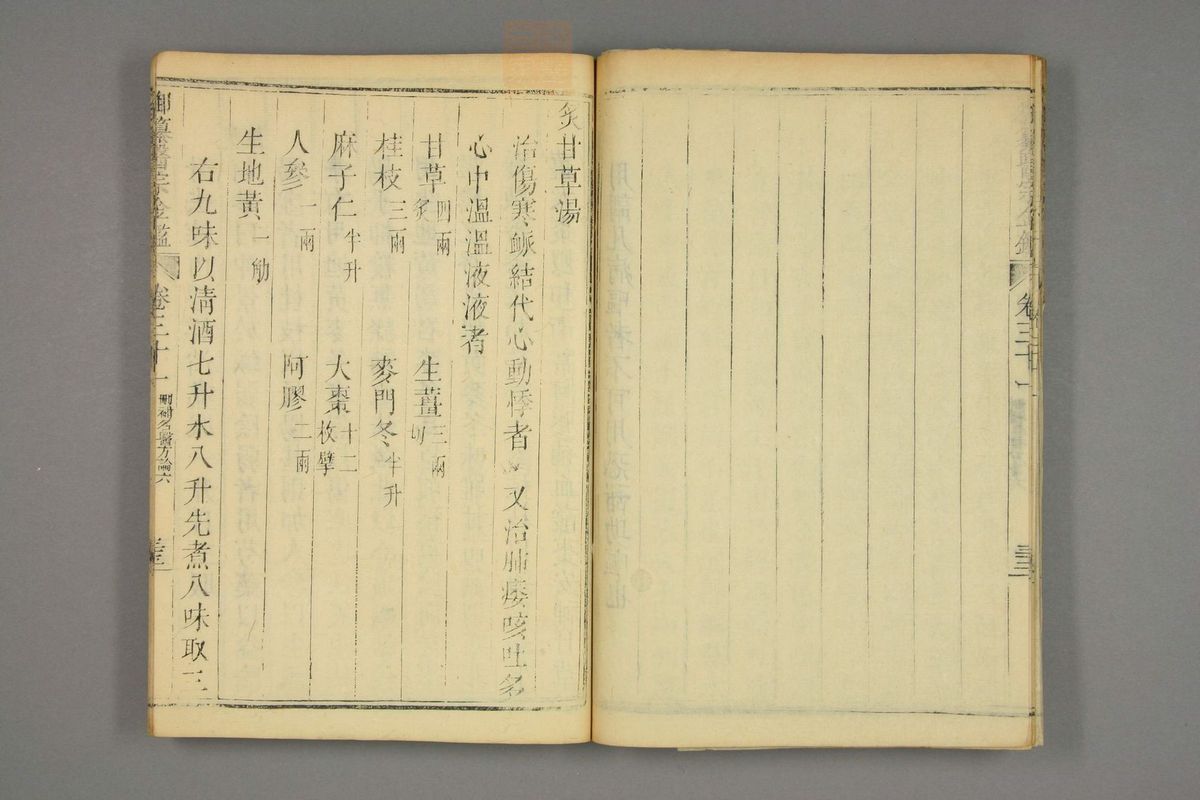 炙甘草湯
治傷寒脈結代心動悸者又治肺痿咳吐多
心中溫溫液液者
甘草四兩炙 生薑三兩切
桂枝三兩 麥門冬半升
麻子仁半升 大棗十二枚擘
人參一兩 阿膠二兩
生地黃一觔
右九味以清酒七升水八升先煮八味取三
御纂醫宗金鑑 卷三十一 刪補名醫方論六 三三
卷三十一